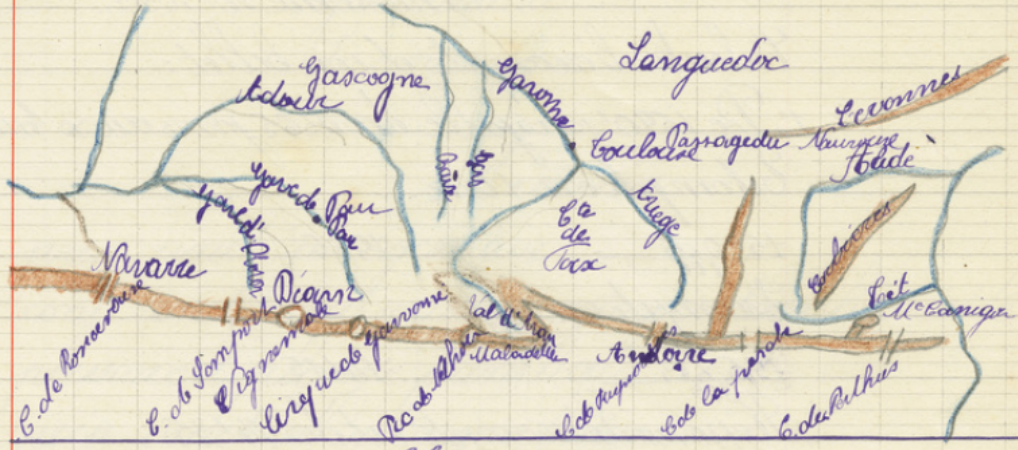 Languedoc
Gascogne
Adour
Garonne
Cevennes
Toulouse
Passage du Naurouze
Aude
Baïse
Gers
Gave de Pau
Pau
Gave d'Oloron
Ariege
Cté
de
Foix
Corbières
Navarre
Béarn
Têt
Mt Canigou
Val d'Aran
Maladetta
Andorre
C. de Roncevaux
C. de Somport
Vignemale
Cirque de Gavarnie
C. de la perche
C. du Perthus